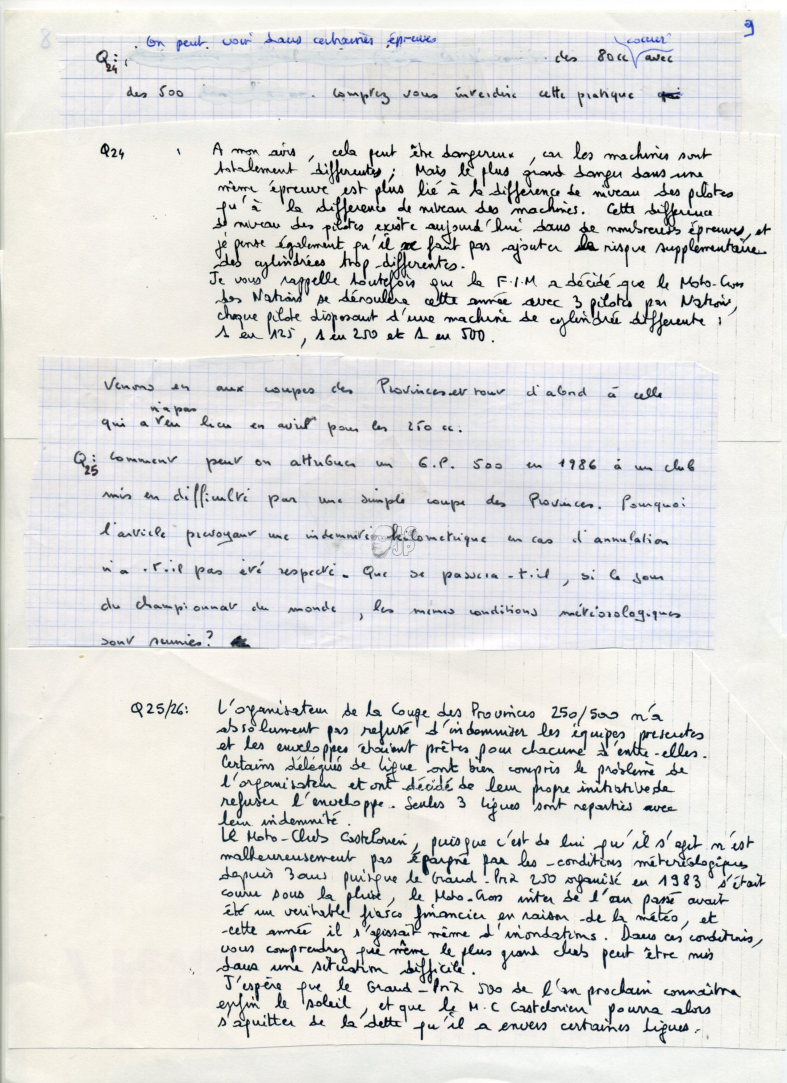 8 On peut voir dans certaines épreuves courir 9
Q: 24 des 80cc avec
des 500 . Comptez vous interdire cette pratique
Q24 : A mon avis, cela peut être dangereux, car les machines sont
totalement differentes ; Mais le plus grand danger dans une
même épreuve est plus lié à la différence de niveau des pilotes
qu'à la différence de niveau des machines. Cette différence
de niveau des pilotes existe aujourd'hui dans de nombreuses épreuves, et
je pense également qu'il ne faut pas ajouter le risque supplémentaire
des cylindrées trop differentes.
Je vous rappelle toutefois que la F.I.M a décidé que le Moto-Cross
des Nations se déroulera cette année avec 3 pilotes par Nation,
chaque pilote disposant d'une machine de cylindrée differente :
1 en 125, 1 en 250 et 1 en 500.
Venons en aux coupes des Provinces et tout d'abord à celle
n'a pas
qui a eu lieu en avril pour les 250 cc.
Q: 25 Comment peut on attribuer un G.P. 500 en 1986 à un club
mis en difficulté par une simple coupe des Provinces. Pourquoi
l'article prevoyant une indemnité kilometrique en cas d'annulation
JP
n'a-t-il pas été respecté. Que se passera-t-il, si le jour
du championnat du monde, les memes conditions météorologiques
sont reunies?
Q25/26: L'organisateur de la Coupe des Provinces 250/500 n'a
absolument pas refusé d'indemniser les équipes presentes
et les enveloppes étaient prêtes pour chacune d'entre-elles.
Certains délégués de ligue ont bien compris le problème de
l'organisateur et ont décidé de leur propre initiative de
refuser l'enveloppe. Seules 3 ligues sont reparties avec
leur indemnité.
Le Moto-Club Castelorien, puisque c'est de lui qu'il s'agit n'est
malheureusement pas épargné par les conditions météréologiques
depuis 3 ans puisque le Grand-Prix 250 organisé en 1983 s'était
couru sous la pluie, le Moto-Cross inter de l'an passé avait
été un veritable fiasco financier en raison de la météo, et
cette année il s'agissait même d'inondations. Dans ces conditions,
vous comprendrez que même le plus grand club peut être mis
dans une situation difficile.
J'espère que le Grand-Prix 500 de l'an prochain connaîtra
enfin le soleil, et que le M.C Castelorien pourra alors
s'aquitter de la dette qu'il a envers certaines ligues.